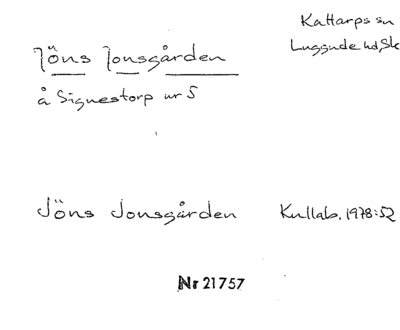 Kattarps sn
Luggude hd, Sk
Jöns Jonsgården
å Signestorp nr 5
Jöns Jonsgården Kullab. 1978:52
Nr 21757